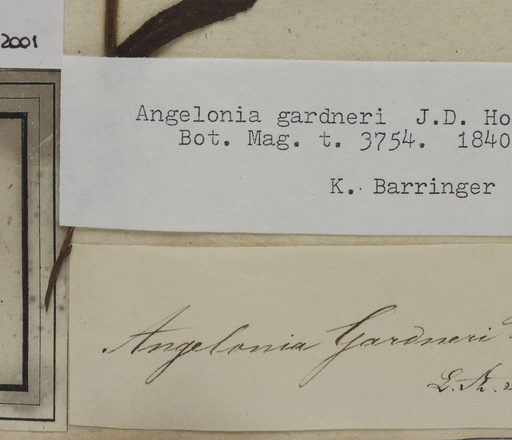 2001
Angelonia gardneri J.D. Ho
Bot. Mag. t. 3754. 1840
K. Barringer
Angelonia Gardneri